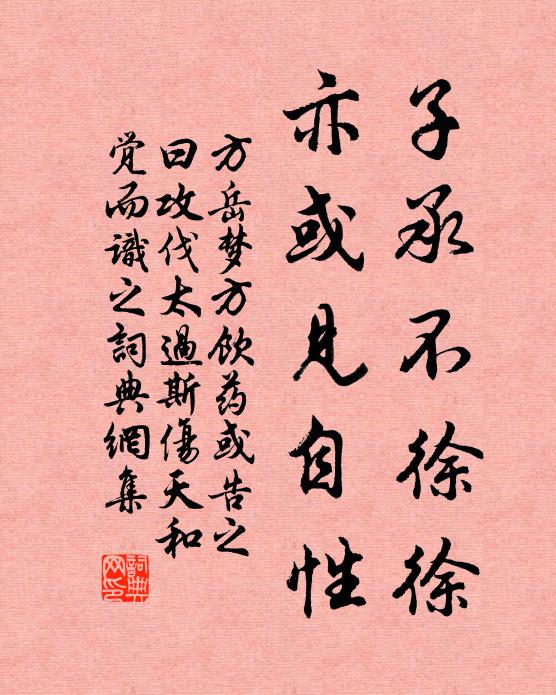 子承不徐徐
亦或見自性
方岳梦方飲药或告之
曰攻伐太過斯傷天和
觉而識之詞典網集
詞典
网印